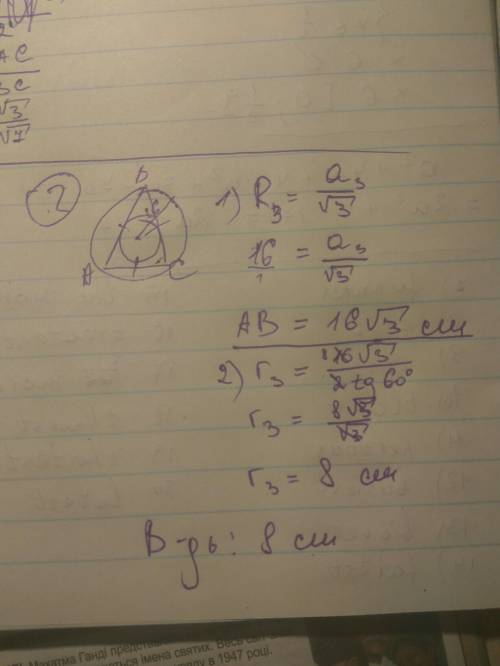 AC
√3
√7
2
B
A
C
1) R₃ = a₃/√3
16/1 = a₃/√3
AB = 16√3 см
2) r₃ = 16√3/2 tg 60°
r₃ = 8√3/√3
r₃ = 8 см
В-дь: 8 см
Махатма Ганді
імена святих. Весь
в 1947 році.